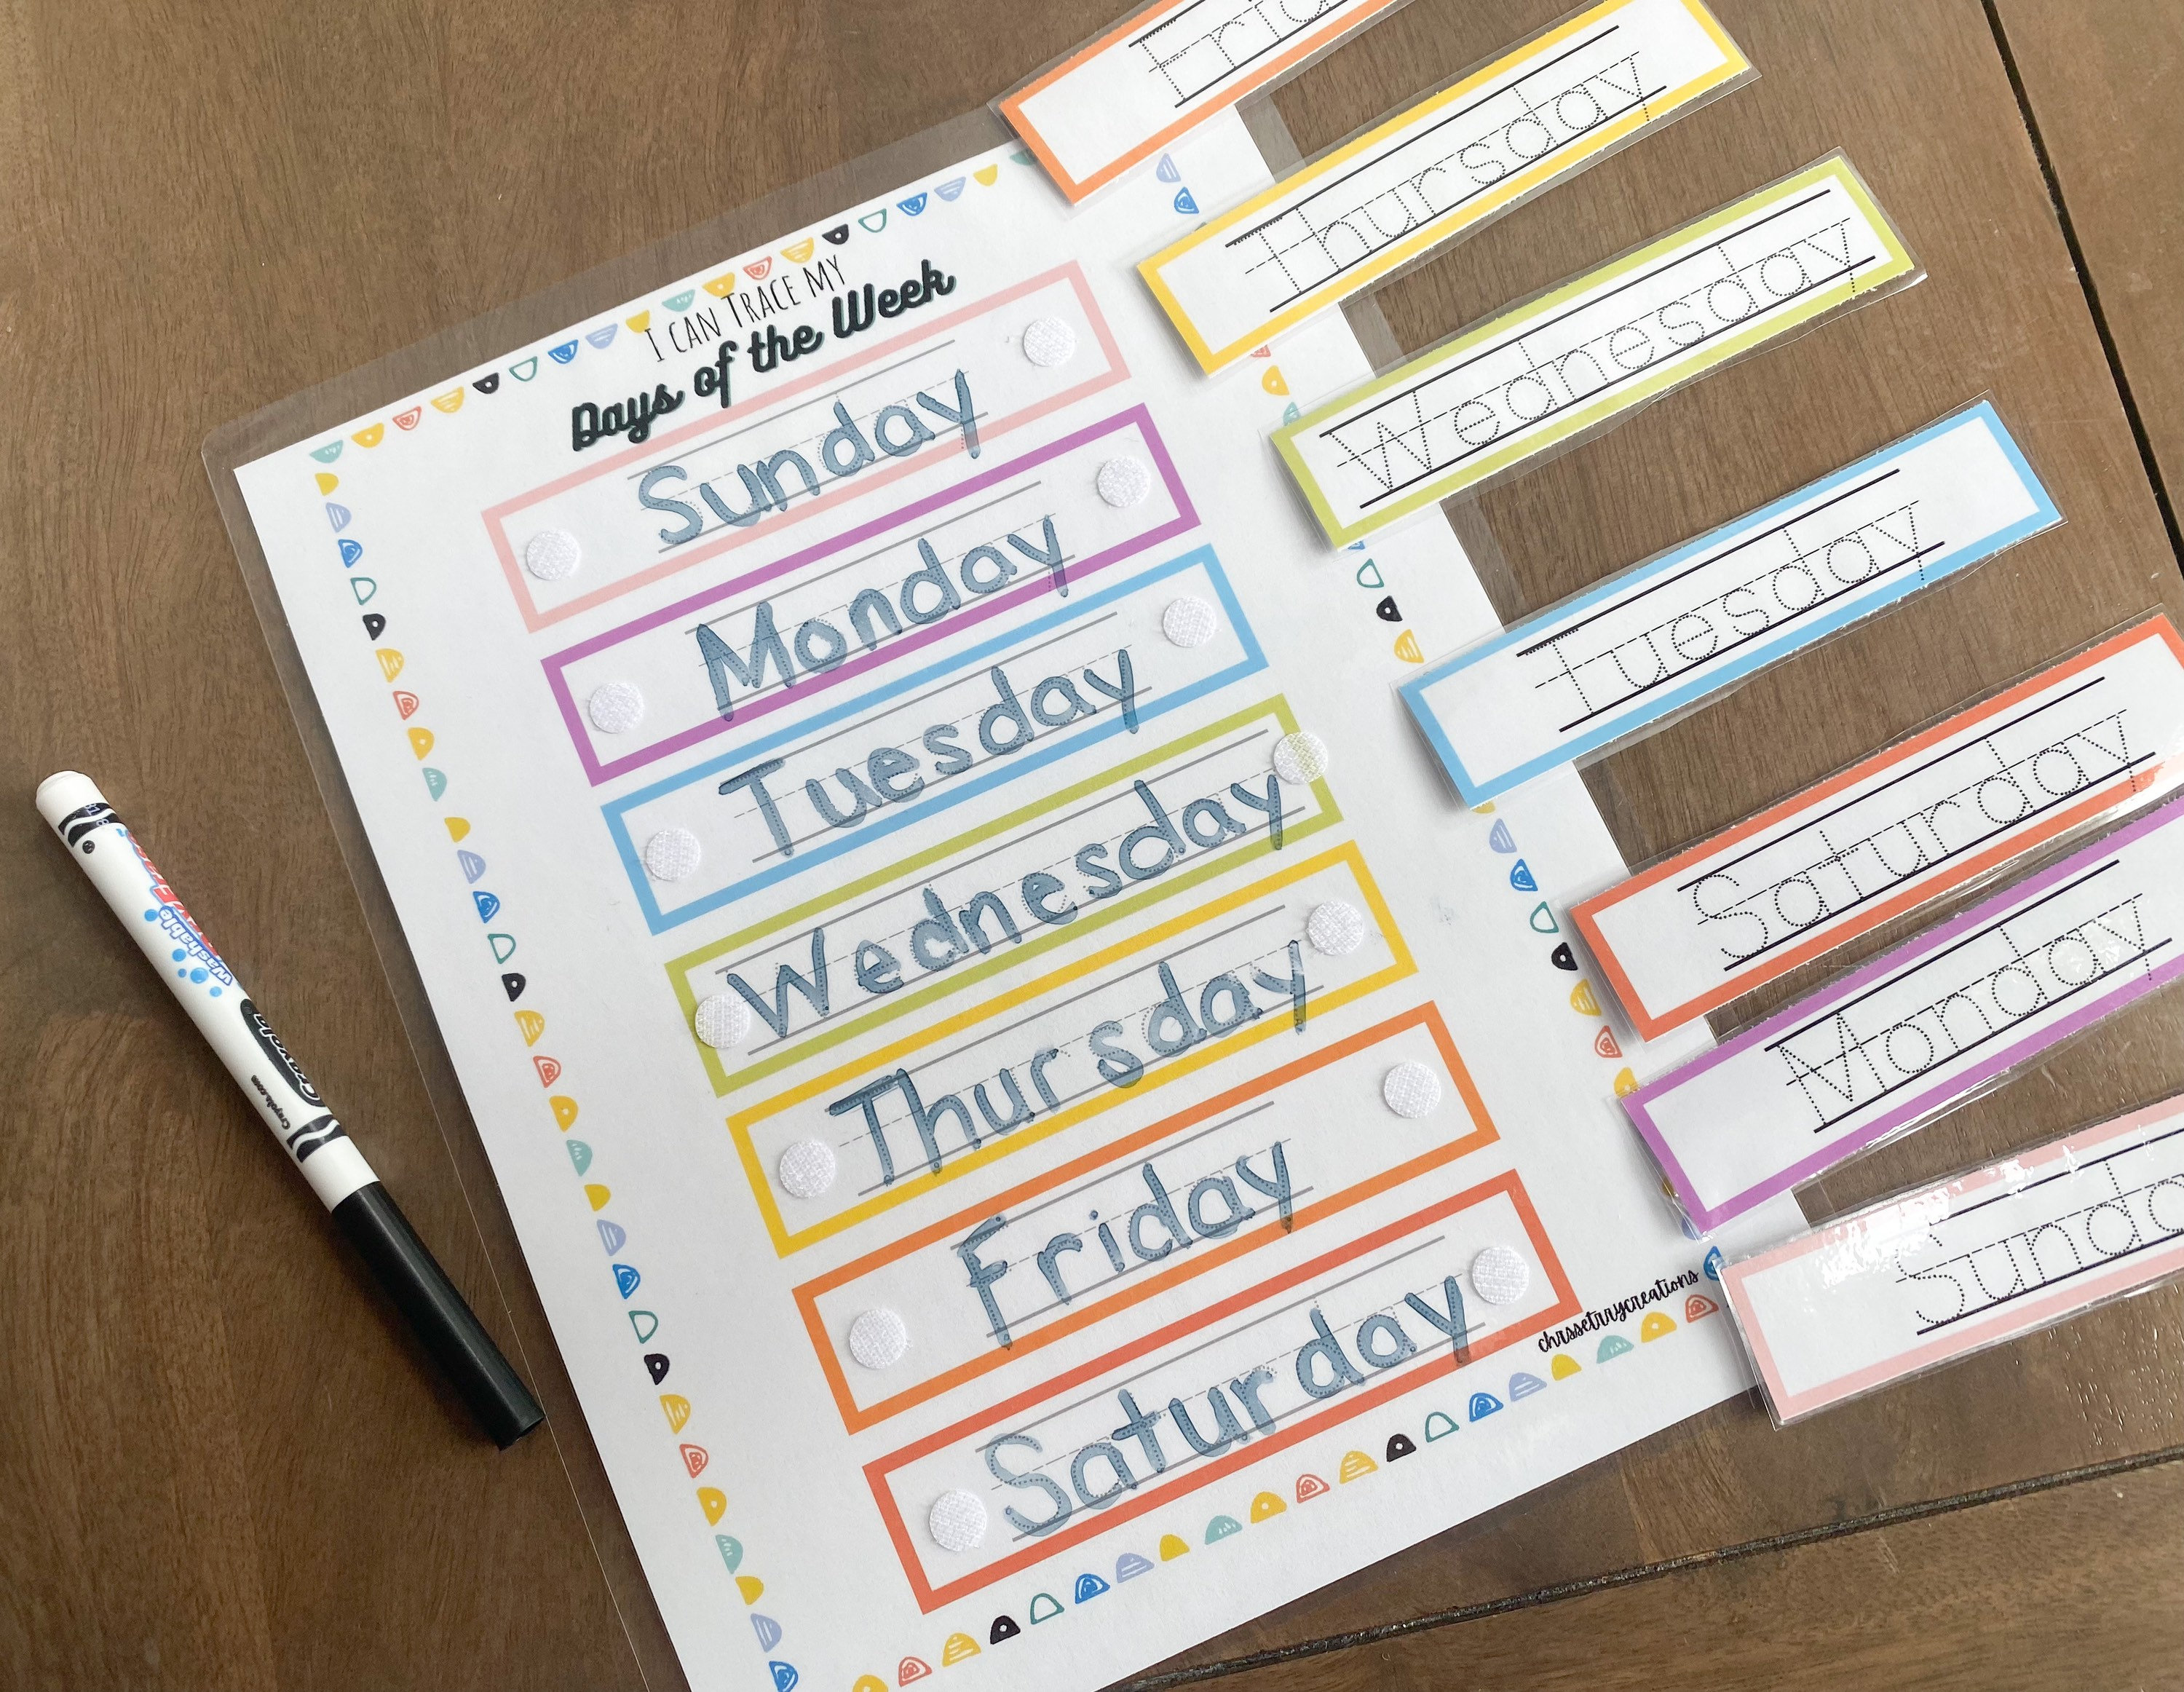 I CAN TRACE MY
Days of the Week
Sunday
Monday
Tuesday
Wednesday
Thursday
Friday
Saturday
chrssetrrycreations
Frid
Thursday
Wednesday
Tuesday
Saturday
Monday
Sunda
Washable
Crayola
Crayola.com